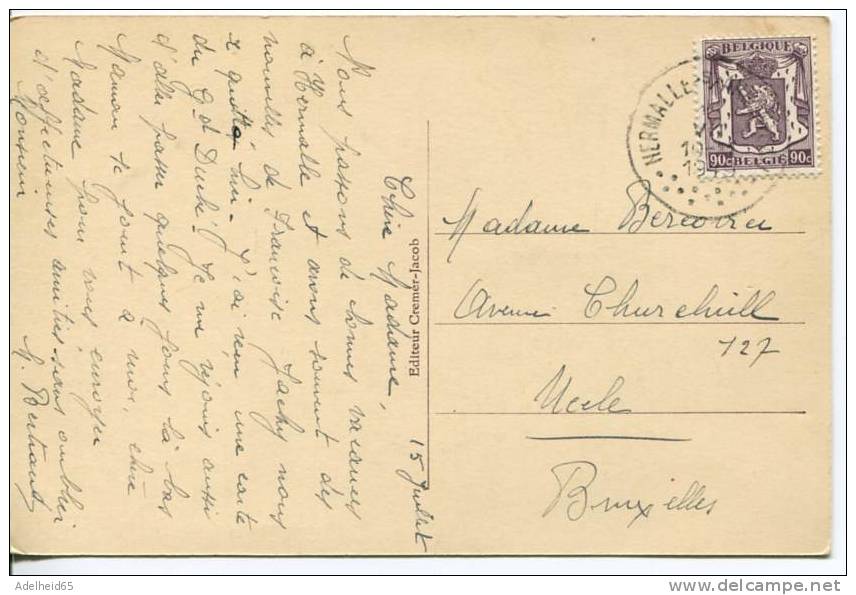 15 Juillet
Chère Madame,
Nous passons de bonnes vacances
à Hermalle et avons souvent des
nouvelles de Françoise. Jacky nous
a quitté hier. J'ai reçu une carte
du Gd Duché. Je me réjouis aussi
d'aller passer quelques jours là bas
Maman se joint à moi, chère
Madame pour vous envoyer
d'affectueuses amitiés sans oublier
Monsieur
Editeur Cremer-Jacob
BELGIQUE
90c BELGIË 90c
HERMALLE-S
Madame
Avenue Churchill
127
Uccle
Bruxelles
Adelheid65
delcampe.net